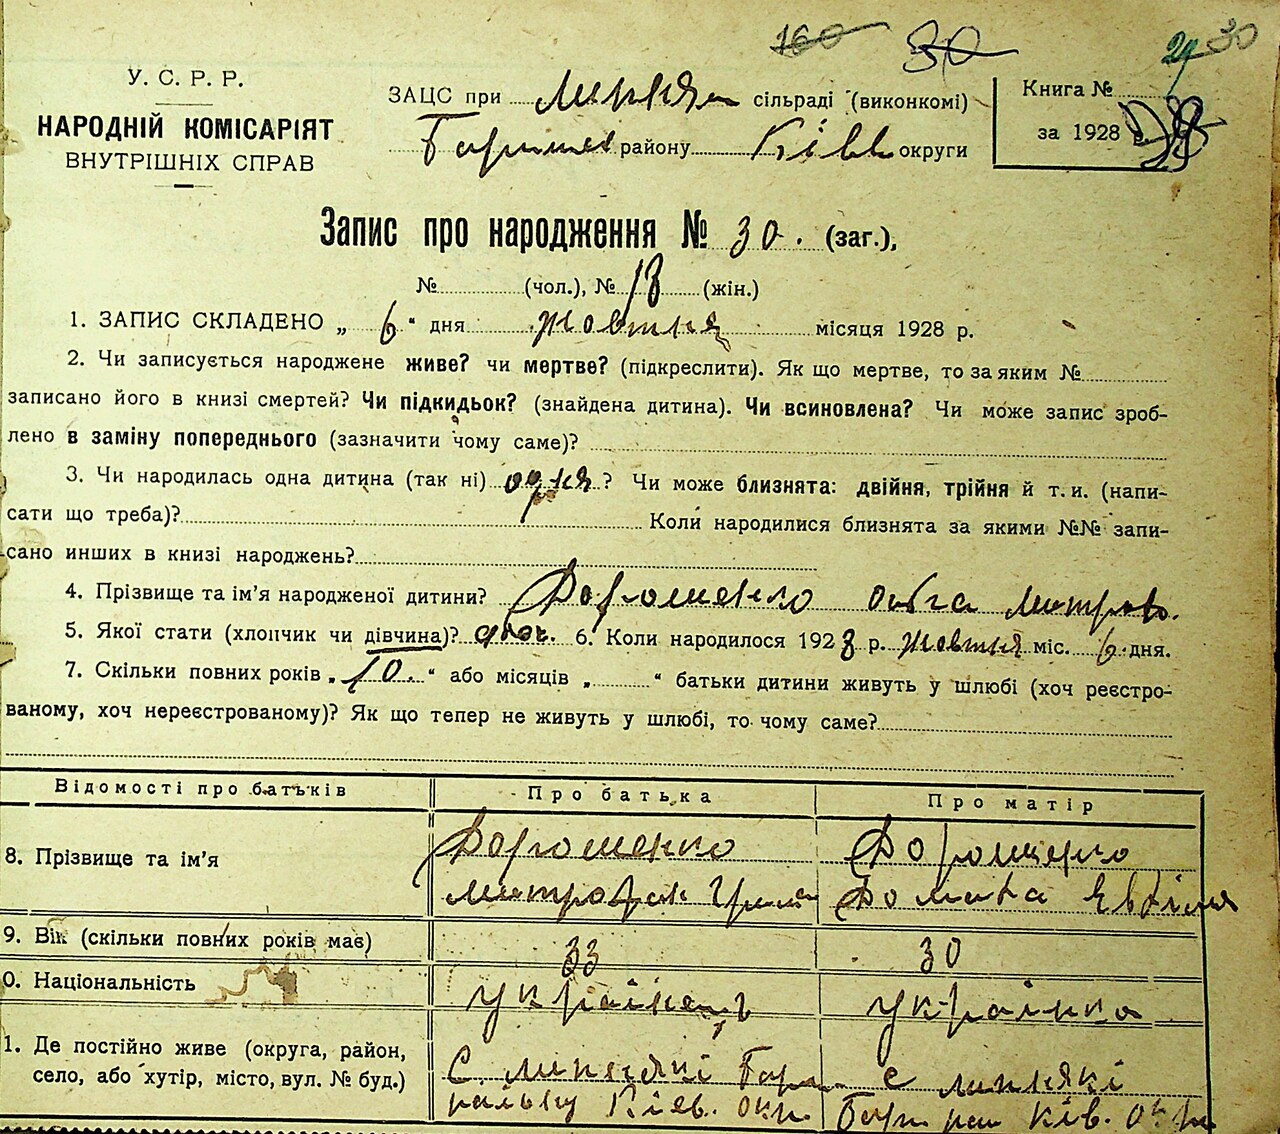 160 30 29 30
У. С. Р. Р.
НАРОДНІЙ КОМІСАРІЯТ
ВНУТРІШНІХ СПРАВ
ЗАЦС при сільраді (виконкомі)
району Київ округи
Книга №
за 1928 р.
Запис про народження № 30. (заг.),
№ (чол.), № 18 (жін.)
1. ЗАПИС СКЛАДЕНО „ 6 " дня жовтня місяця 1928 р.
2. Чи записується народжене живе? чи мертве? (підкреслити). Як що мертве, то за яким №
записано його в книзі смертей? Чи підкидьок? (знайдена дитина). Чи всиновлена? Чи може запис зроб-
лено в заміну попереднього (зазначити чому саме)?
3. Чи народилась одна дитина (так ні) одна? Чи може близнята: двійня, трійня й т. и. (напи-
сати що треба)? Коли народилися близнята за якими №№ запи-
сано инших в книзі народжень?
4. Прізвище та ім'я народженої дитини? Дорошенко Ольга Митроф.
5. Якої стати (хлопчик чи дівчина)? 6. Коли народилося 1928 р. жовтня міс. 6 дня.
7. Скільки повних років „ 10. " або місяців „ " батьки дитини живуть у шлюбі (хоч реєстро-
ваному, хоч нереєстрованому)? Як що тепер не живуть у шлюбі, то чому саме?
Відомості про батьків Про батька Про матір
8. Прізвище та ім'я Дорошенко Дорошенко
Митрофан Домаха
9. Вік (скільки повних років має) 33 30
0. Національність українець українка
1. Де постійно живе (округа, район,
село, або хутір, місто, вул. № буд.)
с. Бори с
району Київ. окр. Бори рай Ків. окр